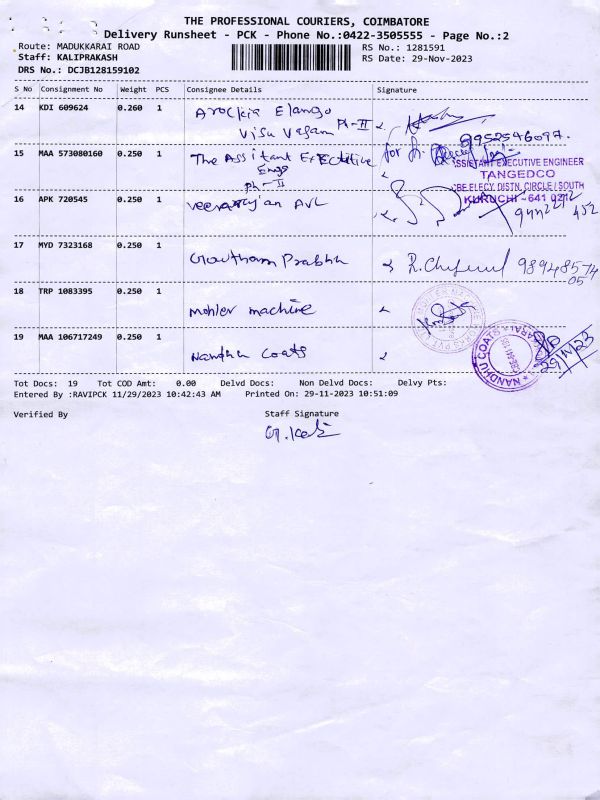 THE PROFESSIONAL COURIERS, COIMBATORE
Delivery Runsheet - PCK - Phone No.:0422-3505555 - Page No.:2
Route: MADUKKARAI ROAD
RS No.: 1281591
Staff: KALIPRAKASH
RS Date: 29-Nov-2023
DRS No.: DCJB128159102
S No Consignment No Weight PCS Consignee Details Signature
14 KDI 609624 0.260 1 Arockia Elango
Visu Vasam Ph-II
9952546097.
15 MAA 573080160 0.250 1 The Assitant Exective
Engg
Ph-II
for
ASSISTANT EXECUTIVE ENGINEER
TANGEDCO
CBE.ELECY. DISTN. CIRCLE / SOUTH
KURUCHI - 641 021
16 APK 720545 0.250 1
17 MYD 7323168 0.250 1 Gowtham Prabhu
18 TRP 1083395 0.250 1 Mohler machine
19 MAA 106717249 0.250 1 Nandhu Coats
NANDHU COATS
29/11/23
Tot Docs: 19 Tot COD Amt: 0.00 Delvd Docs: Non Delvd Docs: Delvy Pts:
Entered By :RAVIPCK 11/29/2023 10:42:43 AM Printed On: 29-11-2023 10:51:09
Verified By Staff Signature